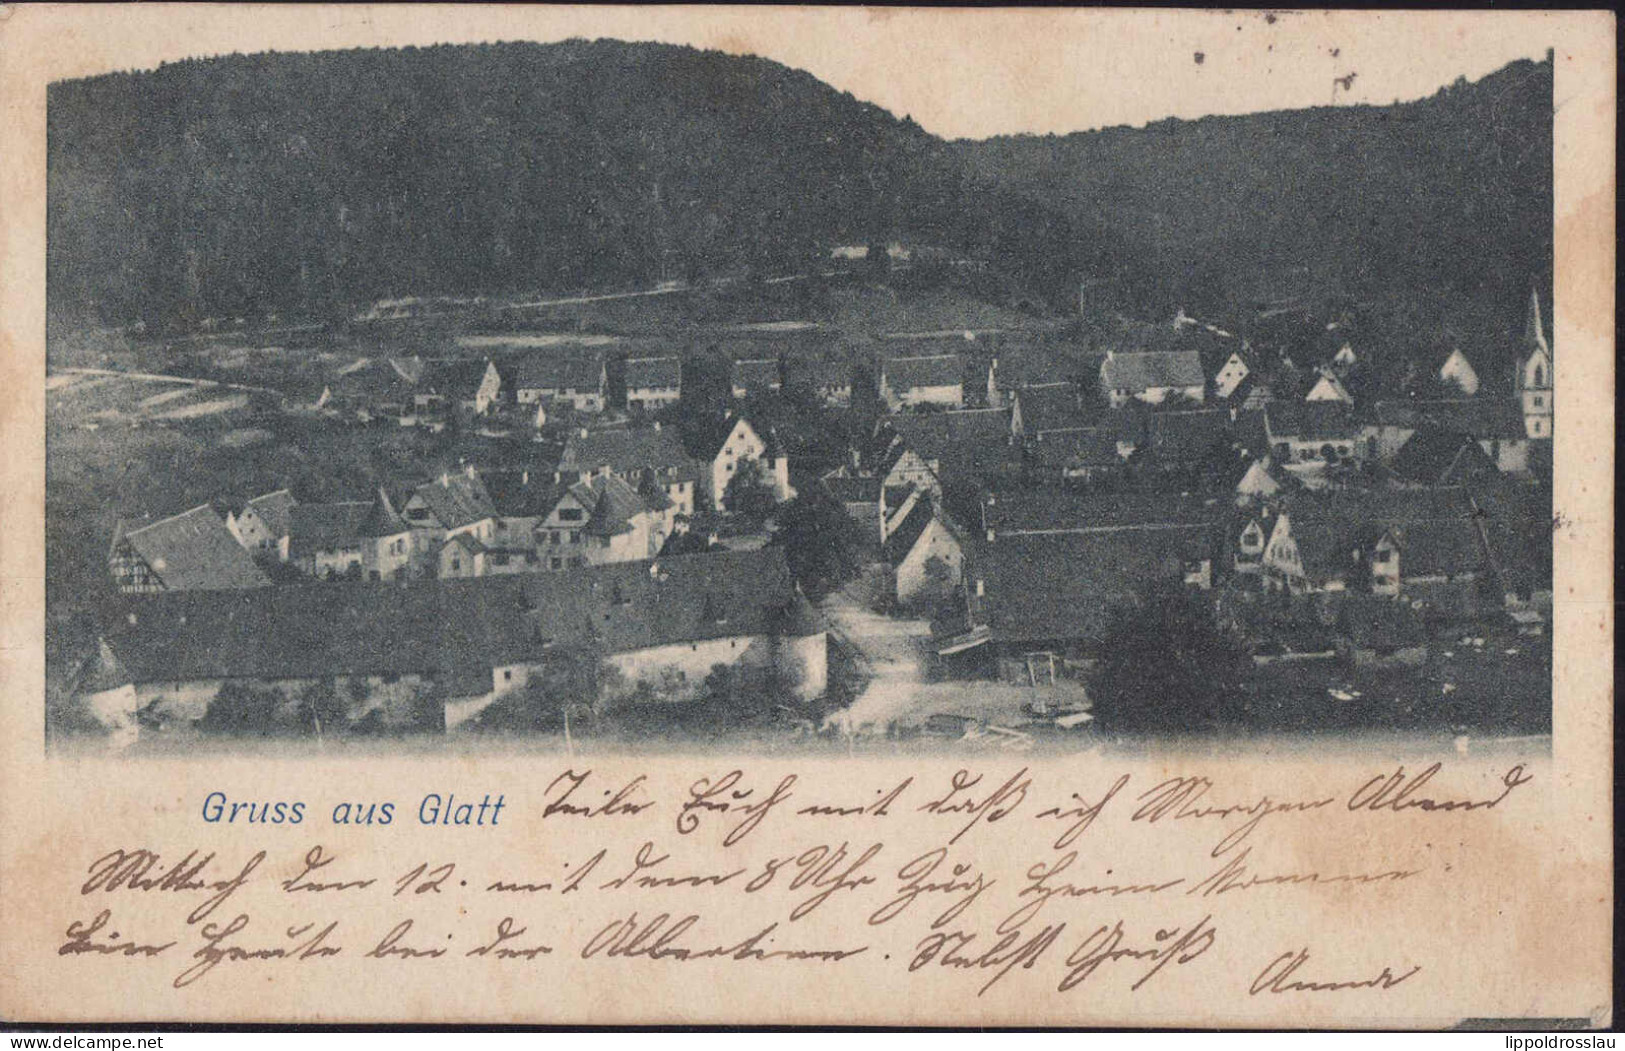 Gruss aus Glatt Teile Euch mit daß ich Morgen Abend
Mittwoch den 12. mit dem 8 Uhr Zug Heim komme.
bin Heute bei der Albertine. Nebst Gruß
Anna
delcampe.net
lippoldrosslau